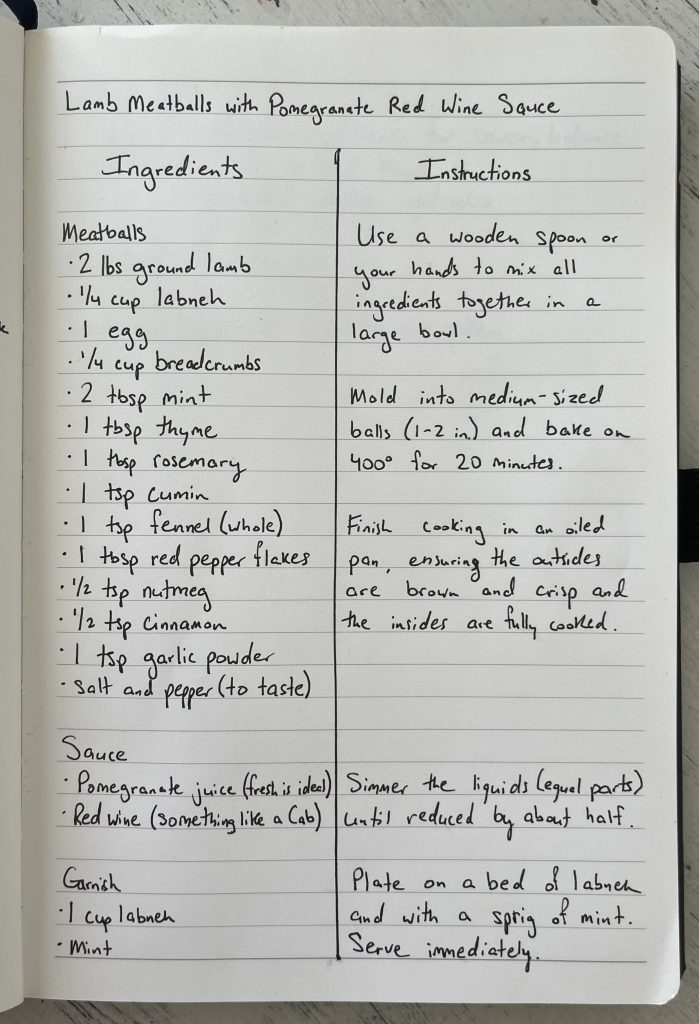 Lamb Meatballs with Pomegranate Red Wine Sauce
Ingredients
Meatballs
· 2 lbs ground lamb
· 1/4 cup labneh
· 1 egg
· 1/4 cup breadcrumbs
· 2 tbsp mint
· 1 tbsp thyme
· 1 tbsp rosemary
· 1 tsp cumin
· 1 tsp fennel (whole)
· 1 tbsp red pepper flakes
· 1/2 tsp nutmeg
· 1/2 tsp cinnamon
· 1 tsp garlic powder
· salt and pepper (to taste)
Sauce
· Pomegranate juice (fresh is ideal)
· Red wine (something like a Cab)
Garnish
· 1 cup labneh
· Mint
Instructions
Use a wooden spoon or
your hands to mix all
ingredients together in a
large bowl.
Mold into medium-sized
balls (1-2 in.) and bake on
400° for 20 minutes.
Finish cooking in an oiled
pan, ensuring the outsides
are brown and crisp and
the insides are fully cooked.
Simmer the liquids (equal parts)
until reduced by about half.
Plate on a bed of labneh
and with a sprig of mint.
Serve immediately.